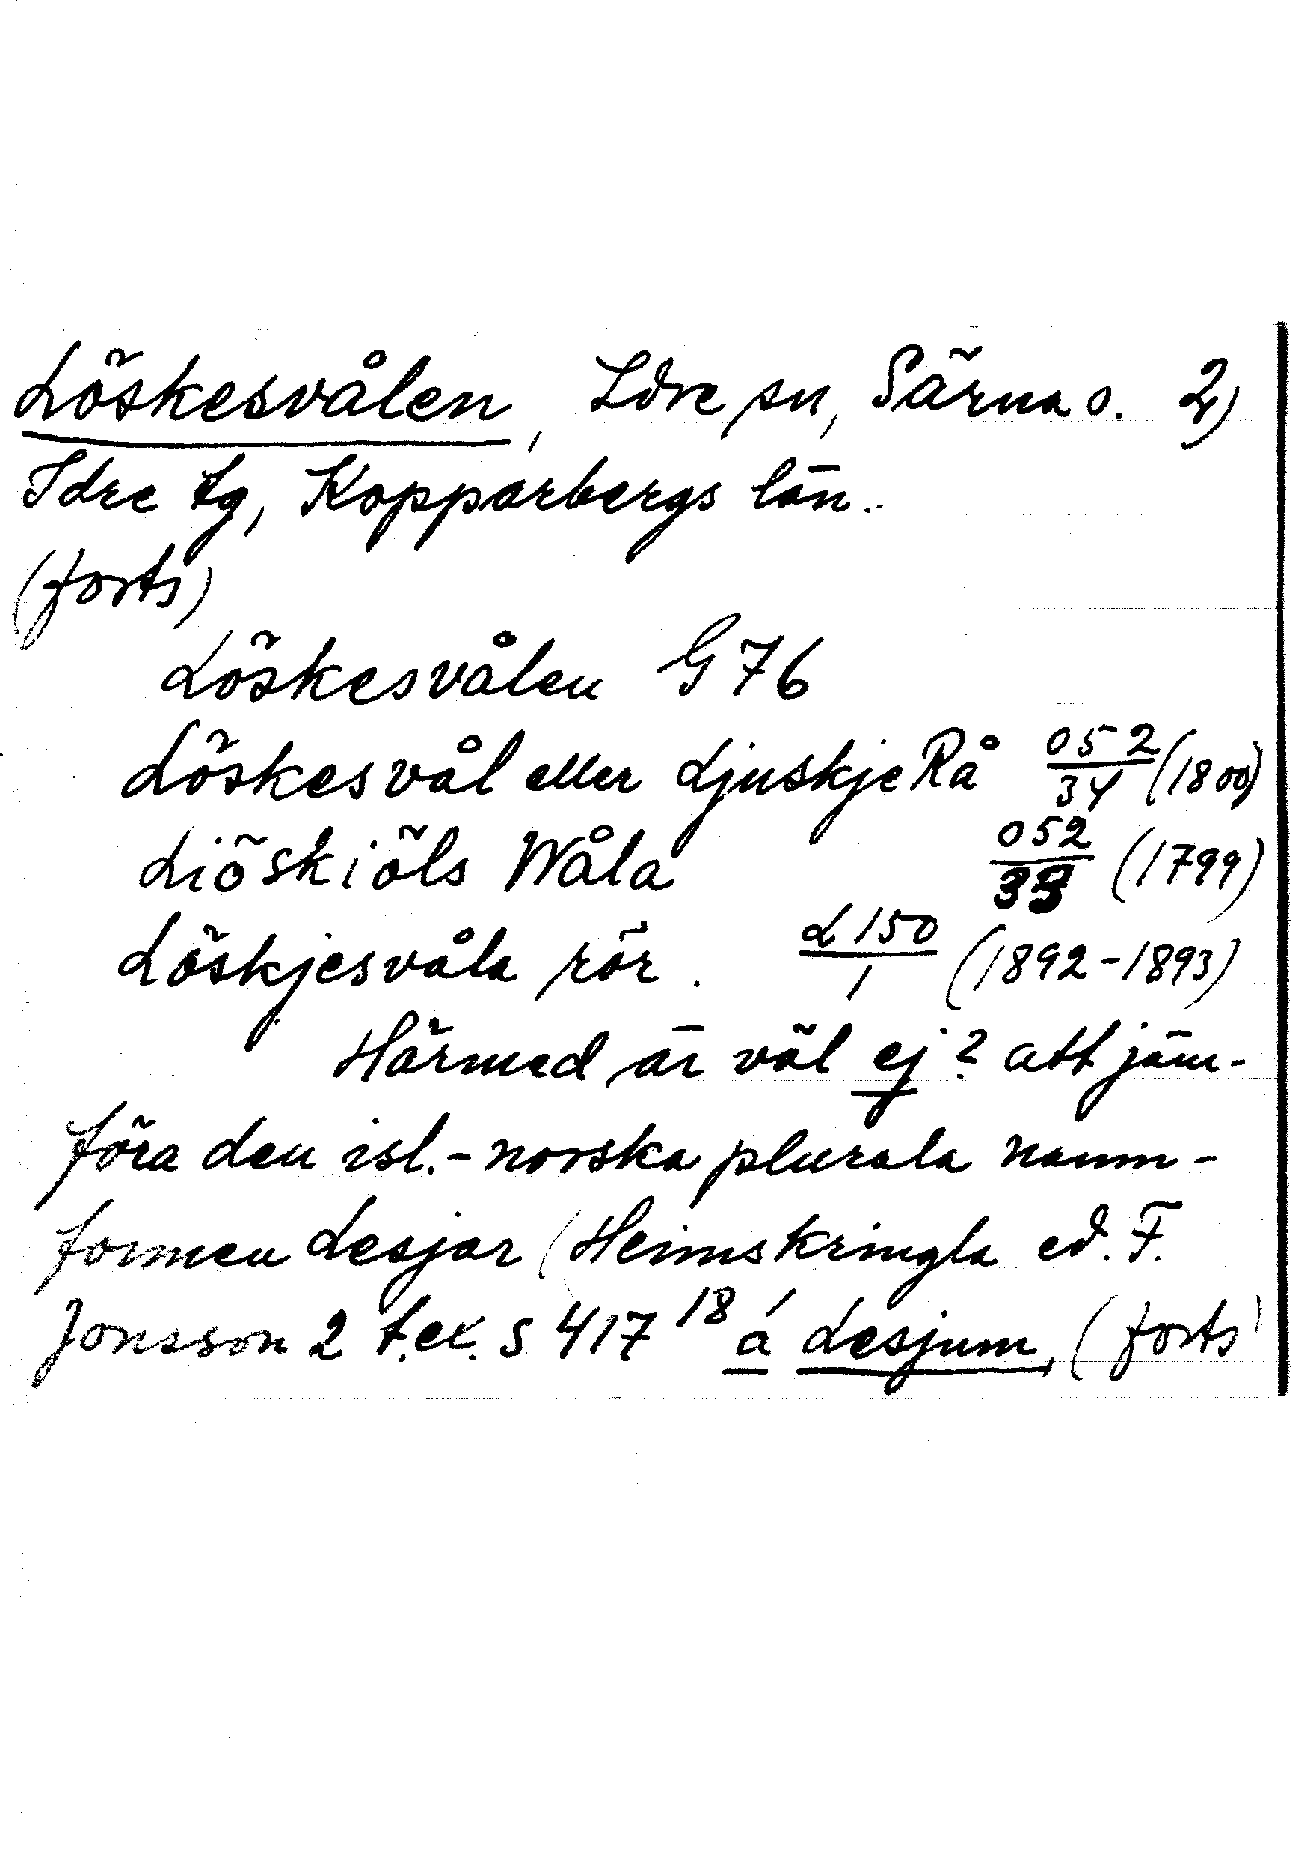 Löskesvålen, Idre sn, Särna o. 2)
Idre tg, Kopparbergs län.
(forts)
Löskesvålen G 76
Löskesvål eller Ljuskje Rå 052/34 (1800)
Liöskiöls Wåla 052/33 (1799)
Löskjesvåla rör. L 150/1 (1892-1893)
Härmed är väl ej? att jäm-
föra den isl.-norska plurala namn-
formen Lesjar (Heimskringla ed. F.
Jonsson 2 t.ex. s 417 18 á Lesjum, (forts)